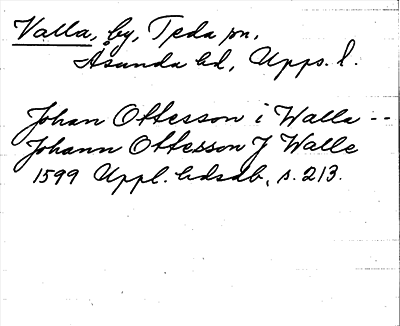 Valla, by, Teda sn,
Åsunda hd, Upps. l.
Johan Ottesson i Walla --
Johann Ottesson J Walle
1599 Uppl. hdsdb, s. 213.